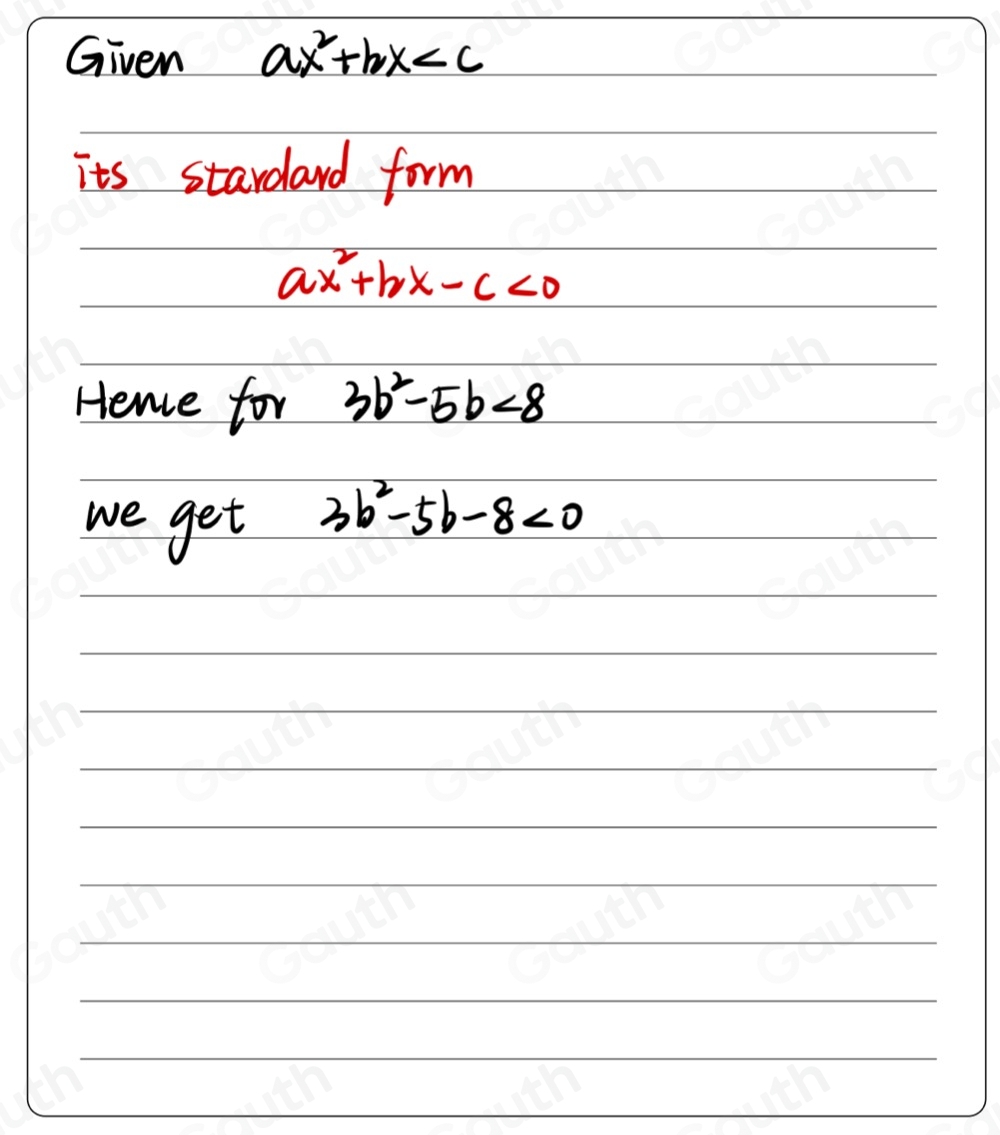 Given ax²+bx<c
its standard form
ax²+bx-c<0
Hence for 3b²-5b<8
we get 3b²-5b-8<0